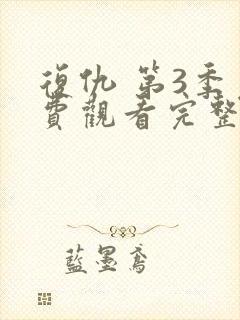 復仇 第3季
費觀看完整
藍墨鳶